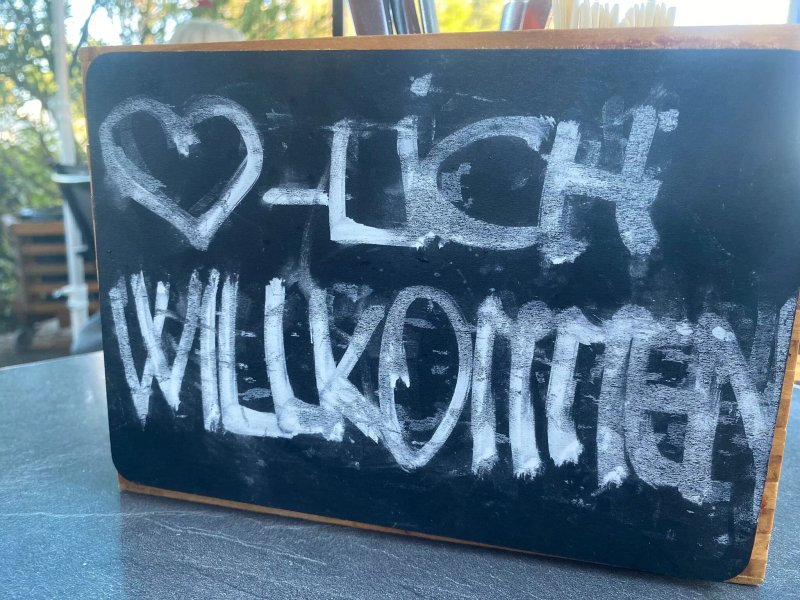 ♡-LICH
WILLKOMMEN